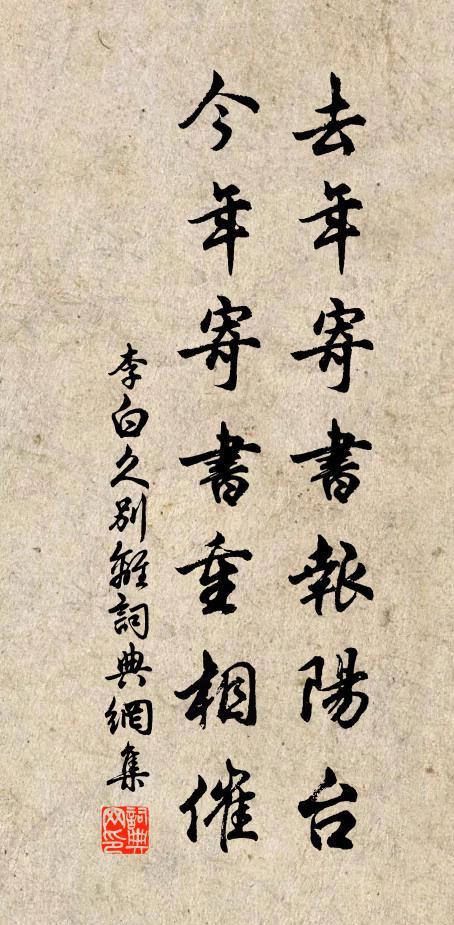 去年寄書報陽台
今年寄書重相催
李白久別離詞典網集
詞典網印